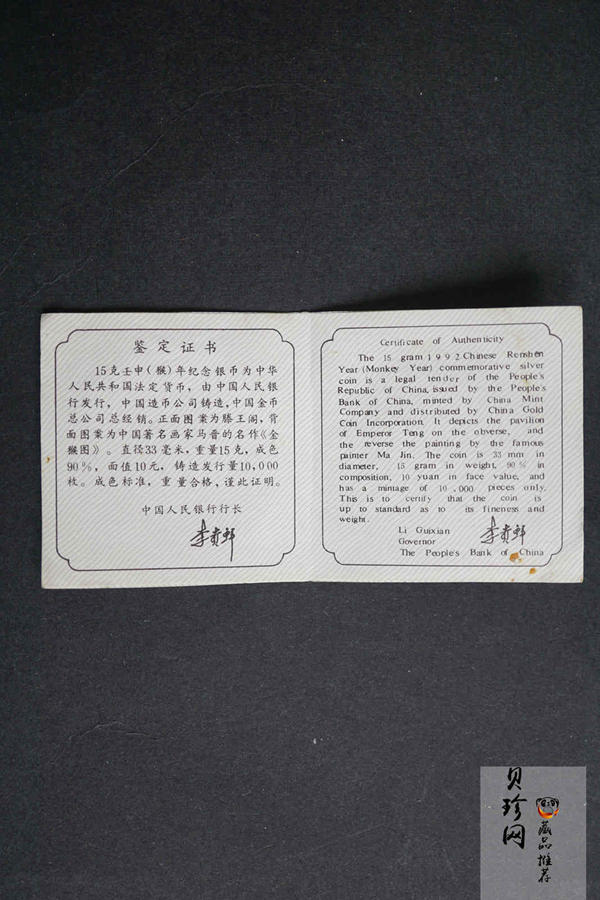 鉴定证书
15克壬申(猴)年纪念银币为中华
人民共和国法定货币，由中国人民银
行发行，中国造币公司铸造，中国金币
总公司总经销。正面图案为滕王阁，背
面图案为中国著名画家马晋的名作《金
猴图》。直径33毫米，重量15克，成色
90%，面值10元，铸造发行量10,000
枚。成色标准，重量合格，谨此证明。
中国人民银行行长
李贵鲜
Certificate of Authenticity
The 15 gram 1992 Chinese Renshen
Year (Monkey Year) commemorative silver
coin is a legal tender of the People's
Republic of China, issued by the People's
Bank of China, minted by China Mint
Company and distributed by China Gold
Coin Incorporation. It depicts the pavilion
of Emperor Teng on the obverse, and
the reverse the painting by the famous
painter Ma Jin. The coin is 33 mm in
diameter, 15 gram in weight, 90% in
composition, 10 yuan in face value, and
has a mintage of 10,000 pieces only.
This is to certify that the coin is
up to standard as to its fineness and
weight.
Li Guixian
李贵鲜
Governor
The People's Bank of China
贝珍网
藏品推荐